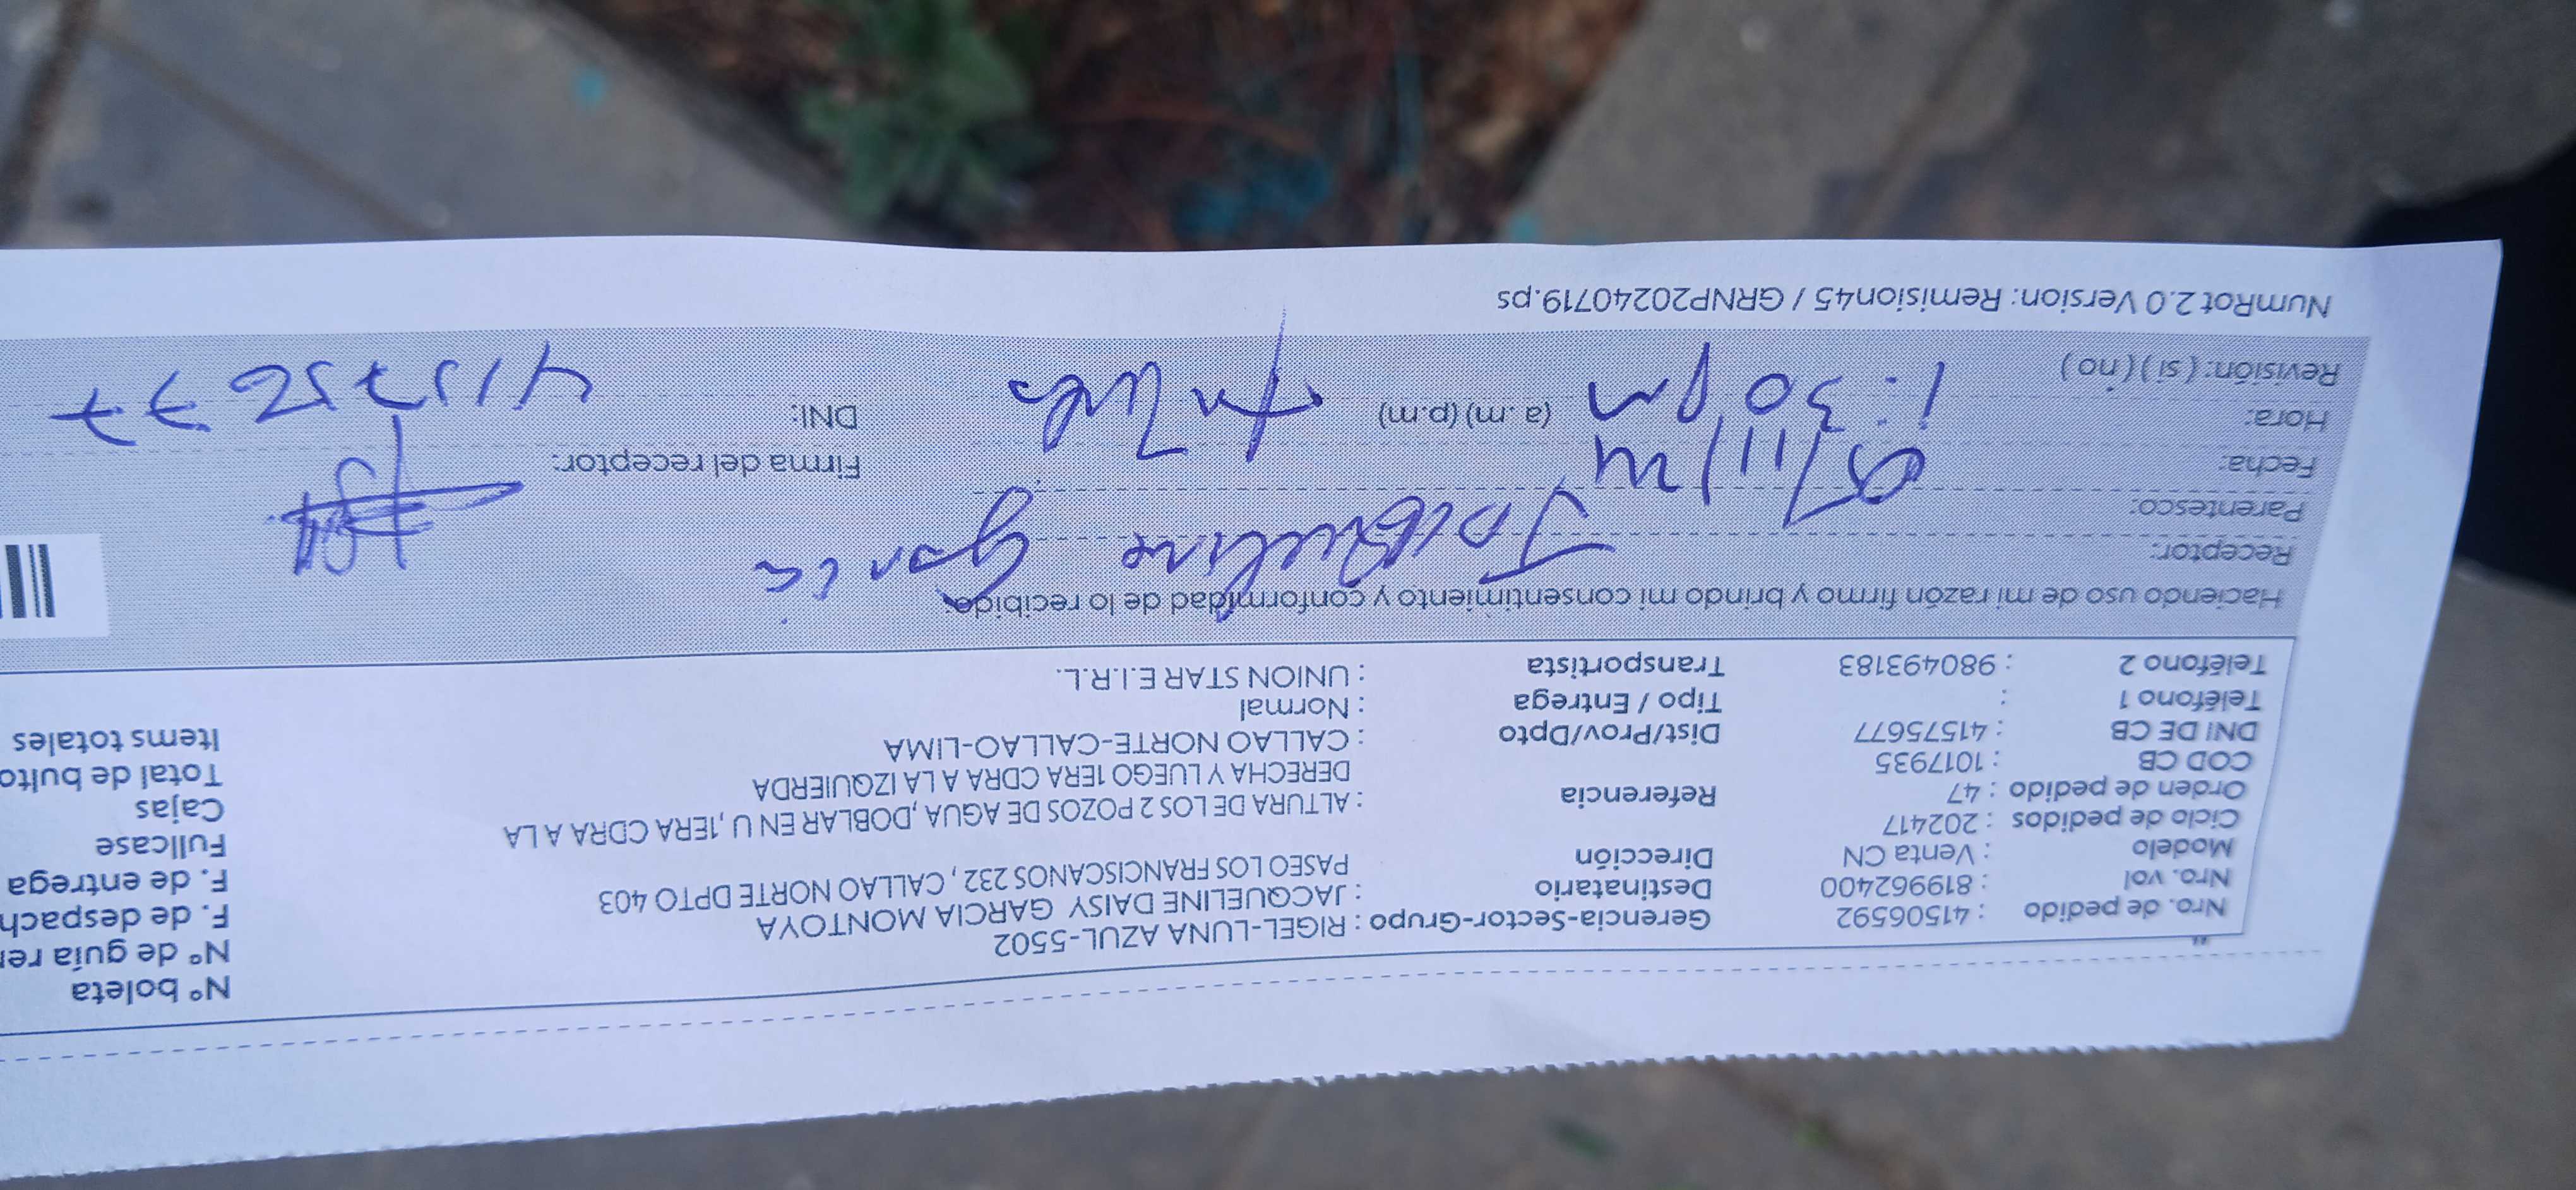 Nº boleta
Nº de guía
F. de despach
F. de entrega
Fullcase
Cajas
Total de bulto
Items totales
Nro. de pedido : 41506592
Nro. vol : 819962400
Modelo : Venta CN
Ciclo de pedidos : 202417
Orden de pedido : 47
COD CB : 1017935
DNI DE CB : 41575677
Teléfono 1 :
Teléfono 2 : 980493183
Gerencia-Sector-Grupo : RIGEL-LUNA AZUL-5502
Destinatario : JACQUELINE DAISY GARCIA MONTOYA
Dirección PASEO LOS FRANCISCANOS 232 , CALLAO NORTE DPTO 403
Referencia : ALTURA DE LOS 2 POZOS DE AGUA ,DOBLAR EN U ,1ERA CDRA A LA
DERECHA Y LUEGO 1ERA CDRA A LA IZQUIERDA
Dist/Prov/Dpto : CALLAO NORTE-CALLAO-LIMA
Tipo / Entrega : Normal
Transportista : UNION STAR E.I.R.L.
Haciendo uso de mi razón firmo y brindo mi consentimiento y conformidad de lo recibido.
Receptor: Jacqueline Garcia
Parentesco:
Fecha:
Firma del receptor:
Hora: 1:30 pm (a.m) (p.m)
DNI: 41575677
Revisión: ( si ) ( no )
NumRot 2.0 Version: Remision45 / GRNP20240719.ps